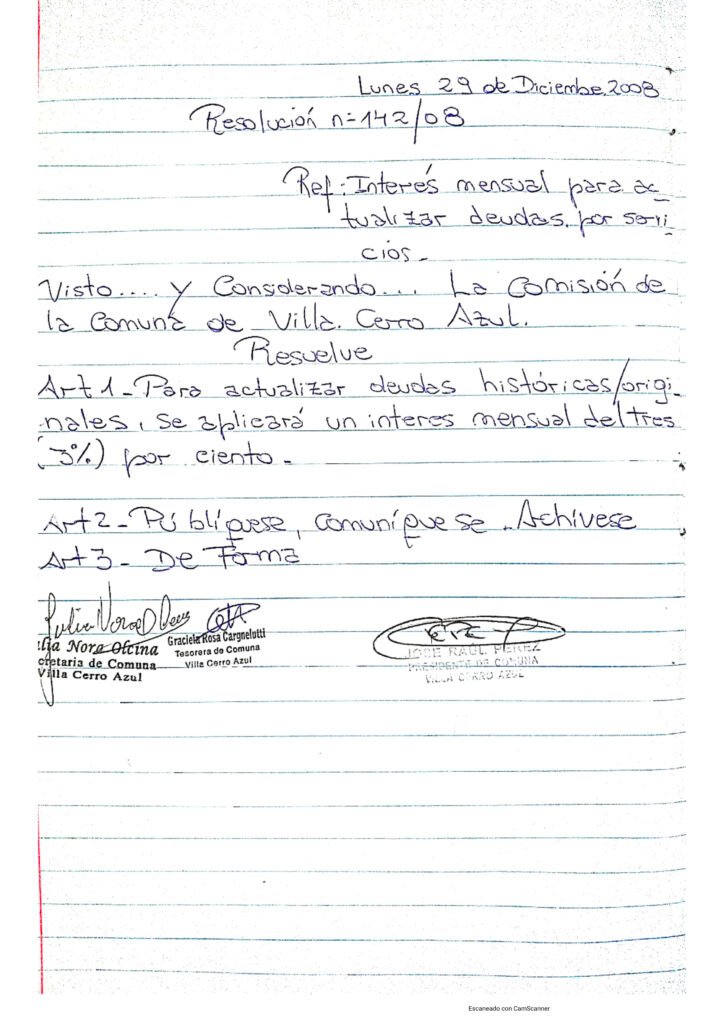 Lunes 29 de Diciembre 2008
Resolución n=142/08
Ref: Interés mensual para ac-
tualizar deudas, por servi-
cios.-
Visto.... y Considerando... La Comisión de
la Comuna de Villa. Cerro Azul.
Resuelve
Art 1- Para actualizar deudas históricas/origi-
nales, se aplicará un interes mensual del tres
(3%) por ciento-
Art 2- Públiquese, comuníquese. Achívese
Art 3- De Forma
lia Nora Olcina
cretaria de Comuna
Villa Cerro Azul
Graciela Rosa Cargnelutti
Tesorera de Comuna
Villa Cerro Azul
JOSE RAUL PEREZ
PRESIDENTE DE COMUNA
VILLA CERRO AZUL
Escaneado con CamScanner